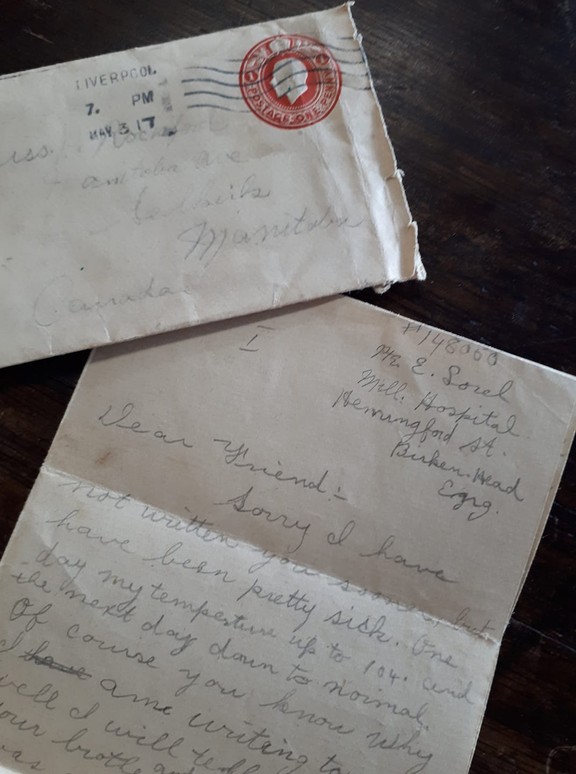 LIVERPOOL
7. PM
MAY 3 17
POSTAGE ONE PENNY
Manitoba
Canada
I
#148050
Pte E. Sorel
Mill. Hospital
Hemingford St.
Birken-Head
Eng.
Dear Friend:-
Sorry I have
not written you sooner, but
have been pretty sick. One
day my temperture up to 104° and
the next day down to normal.
Of course you know why
I have ame writing to
well I will tell
your brother
was